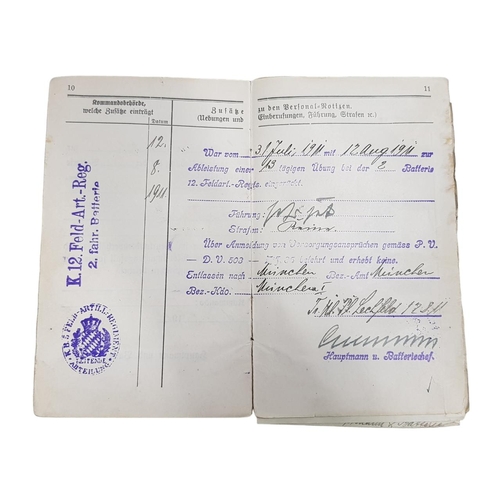 10
11
Kommandobehörde,
welche Zusätze einträgt
Datum
Zusätze
(Uebungen und
zu den Personal-Notizen.
Einberufungen, Führung, Strafen ꝛc.)
12.
8.
1911
K. 12. Feld-Art.-Reg.
2. fahr. Batterie
War vom 31 Juli 1911 mit 12 Aug 1911 zur
Ableistung einer 13 tägigen Übung bei der 2 Batterie
12. Feldart.-Regts.
Führung: sehr gut
Strafen: Keine.
Über Anmeldung von Versorgungsansprüchen gemäss P. V.
D. V. 503 belehrt und erhebt keine.
Entlassen nach München Bez.-Amt München
Bez.-Kdo. München I
Lechfeld 12 8 11
Hauptmann u. Batteriechef.
FELD-ARTILL-REGIMENT
REITENDE
ABTEILUNG